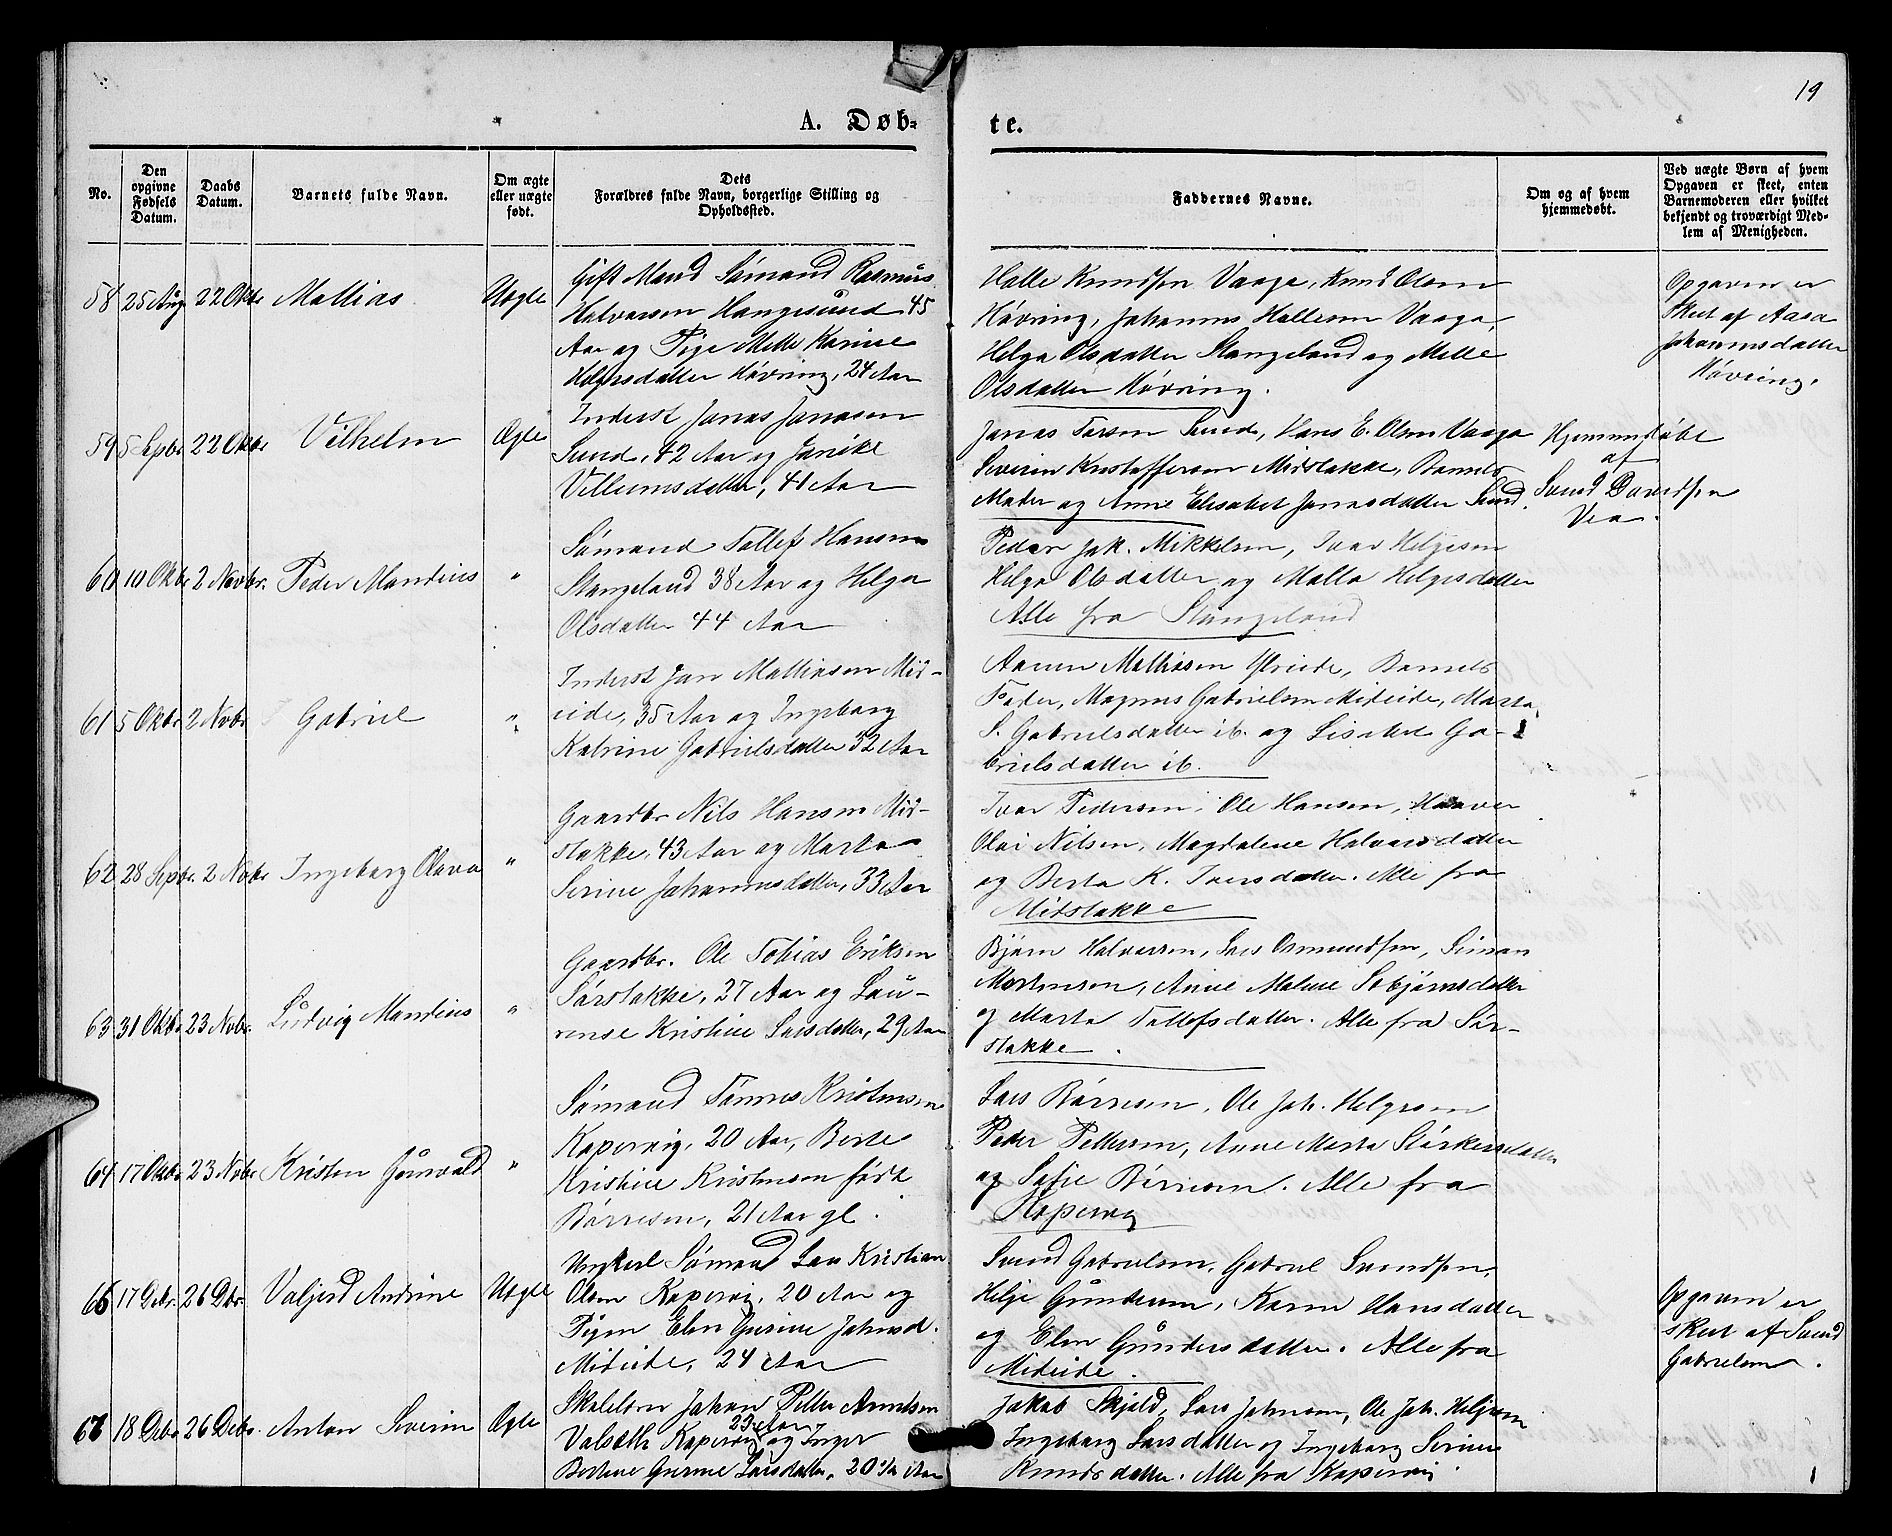 19
A. Døb-
te.
No.
Den opgivne Fødsels Datum.
Daabs Datum.
Barnets fulde Navn.
Om ægte eller uægte født.
Dets Forældres fulde Navn, borgerlige Stilling og Opholdssted.
Faddernes Navne.
Om og af hvem hjemmedøbt.
Ved uægte Børn af hvem Opgaven er skeet, enten Barnemoderen eller hvilket bekjendt og troværdigt Medlem af Menigheden.
58 25 Aug 22 Oktbr Mathias Uægte
Gift Mand Sømand Rasmus
Halvorsen Haugesund, 45
Aar og Pige Mette Karine
Helgesdatter Høvring, 24 Aar
Halle Knudsen Vaage, Knud Olsen
Høvring, Johannes Hallesen Vaage,
Helga Olsdatter Stangeland og Mette
Olsdatter Høvring.
Opgaven er
skeet af Aasa
Johannesdatter
Høvring.
59 5 Sepbr 22 Oktbr Vilhelm Ægte
Inderst Jonas Jonasen
Sund, 42 Aar og Jorike
Villumsdatter, 41 Aar
Jonas Torsen Sund, Hans E. Olsen Vaage
Severin Kristoffersen Midstokke, Barnets
Moder og Anne Elisabet Jonasdatter Sund.
Hjemmedøbt
af
Svend Davidsen
Vea.
60 10 Oktbr 2 Novbr. Peder Mandius "
Sømand Tollef Hansen
Stangeland 38 Aar og Helga
Olsdatter 44 Aar
Peder Joh. Mikkelsen, Ivar Helgesen
Helga Olsdatter og Malla Helgesdatter
Alle fra Stangeland
61 5 Oktbr 2 Novbr Gabriel "
Inderst Jon Mathiasen Mid-
eide, 35 Aar og Ingeborg
Katrine Gabrielsdatter 32 Aar
Aanen Mathiasen Ytreide, Barnets
Fader, Magnus Gabrielsen Mideide, Marta
S. Gabrielsdatter ib. og Lisabet Ga-
brielsdatter ib.
62 28 Sepbr. 2 Novbr Ingeborg Olava "
Gaardbr Nils Hansen Mid-
stokke, 43 Aar og Marta
Serine Johannesdatter, 33 Aar
Ivar Pedersen, Ole Hansen, Haaver
Olai Nilsen, Magdalene Halvorsdatter
og Berta K. Iversdatter. Alle fra
Midstokke
63 31 Oktbr 23 Novbr. Ludvig Mandius "
Gaardbr. Ole Tobias Eriksen
Sørstokke, 27 Aar og Lau-
rense Kristine Larsdatter, 29 Aar
Bjørn Halvorsen, Lars Osmundsen, Simon
Mortensen, Anne Malene Asbjørnsdatter
og Marta Tollefsdatter. Alle fra Sør-
stokke.
64 17 Oktbr 23 Novbr Kristen Gunvald "
Sømand Tønnes Kristensen
Kopervig, 20 Aar, Berte
Kristine Kristensen født
Børresen, 21 Aar gl.
Lars Børresen, Ole Joh. Helgesen
Peder Pettersen, Anne Marta Størkersdatter
og Sofie Børresen. Alle fra
Kopervig
66 17 Debr. 26 Dbr. Valjerd Andrine Uægte
Ungkarl Sømand Lau Kristian
Olsen Kopervig, 20 Aar og
Pigen Elen Gurine Johnsd.
Mideide, 24 Aar
Svend Gabrielsen, Gabriel Svendsen,
Helje Gundersen, Karen Hansdatter
og Elen Gundersdatter. Alle fra
Mideide.
Opgaven er
skeet af Svend
Gabrielsen.
67 18 Debr 26 Debr. Anton Severin Ægte
Skolelærer Johan Petter Arntsen
23 Aar
Valsøth Kopervig og Inger
Bertine Gurine Larsdatter, 20 1/2 Aar
Jakob Skjold, Lars Johnsen, Ole Joh. Helgesen
Ingeborg Larsdatter og Ingeborg Serine
Knudsdatter. Alle fra Kopervig.